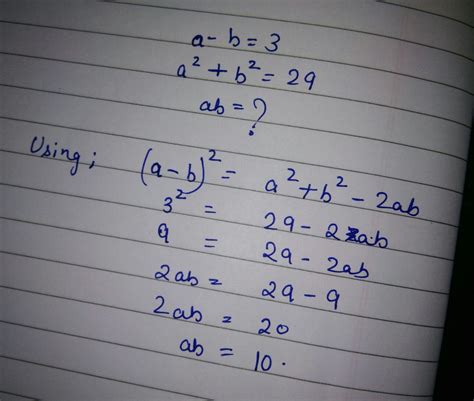 a - b = 3
a² + b² = 29
ab = ?
Using; (a - b)² = a² + b² - 2ab
3² = 29 - 2ab
9 = 29 - 2ab
2ab = 29 - 9
2ab = 20
ab = 10.